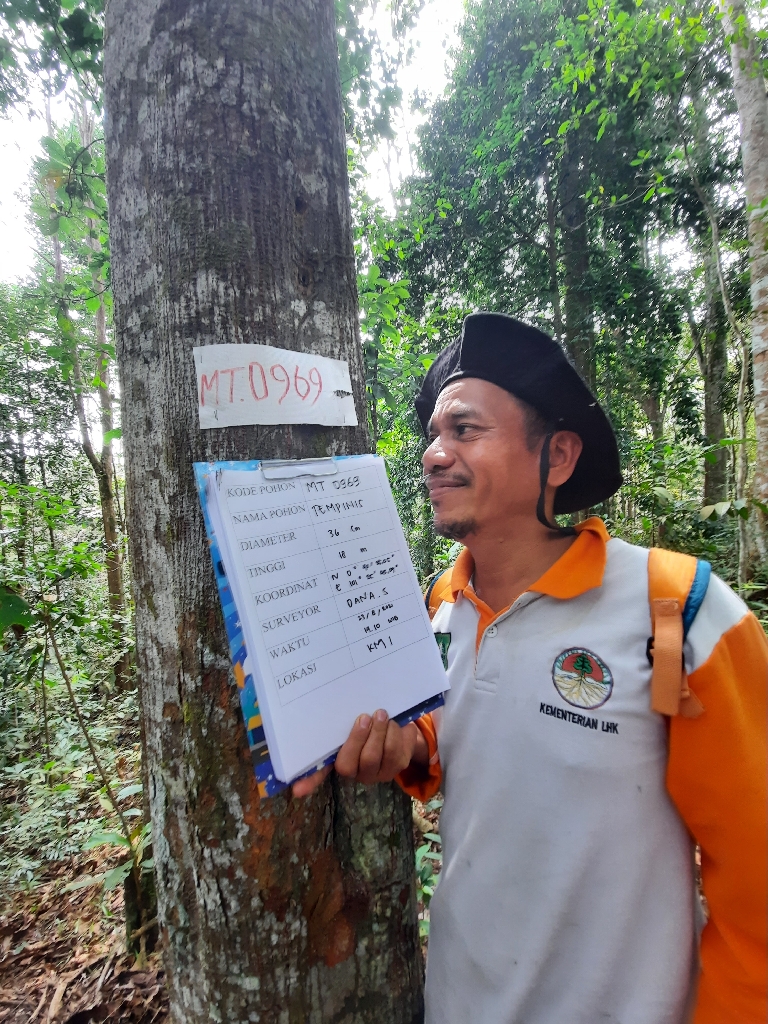 MT.0969
KODE POHON MT 0969
NAMA POHON TEMPINIS
DIAMETER 36 Cm
TINGGI 18 m
KOORDINAT N 0°
E 101°
SURVEYOR DANA.S
WAKTU
14.10 WIB
LOKASI KM 1
KEMENTERIAN LHK